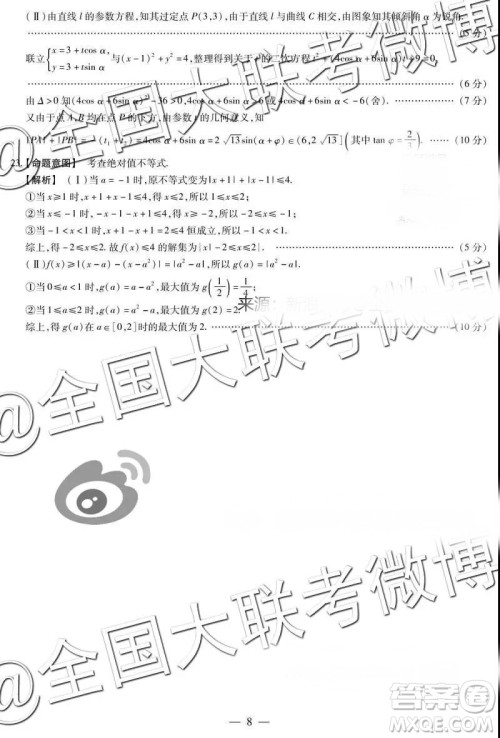 (Ⅱ)由直线 l 的参数方程,知其过定点 P(3,3),由于直线 l 与曲线 C 相交,由图象知其倾斜角 α 为锐角.
(5 分)
联立{x=3+tcos α, y=3+tsin α 与(x-1)²+y²=4,整理得到关于 t 的二次方程 t²+(4cos α+6sin α)t+9=0,
(6 分)
由 Δ>0 知(4cos α+6sin α)²-36>0,4cos α+6sin α>6 或 4cos α+6sin α<-6(舍). (7 分)
又由于点 A,B 均在点 P 的下方,由参数 t 的几何意义,知
|PA|+|PB|=-(t₁+t₂)=4cos α+6sin α=2√13sin(α+φ)∈(6,2√13](其中 tan φ=2/3). (10 分)
23.【命题意图】 考查绝对值不等式.
【解析】 (Ⅰ)当 a=-1 时,原不等式变为|x+1|+|x-1|≤4.
①当 x≥1 时,x+1+x-1≤4,得 x≤2,所以 1≤x≤2;
②当 x≤-1 时,-x-1-x+1≤4,得 x≥-2,所以-2≤x≤-1;
③当-1<x<1 时,x+1-x+1=2≤4 恒成立,所以-1<x<1.
综上,得-2≤x≤2. 故 f(x)≤4 的解集为{x|-2≤x≤2}. (5 分)
(Ⅱ)f(x)≥|(x-a)-(x-a²)|=|a²-a|,所以 g(a)=|a²-a|.
①当 0≤a<1 时,g(a)=a-a²,最大值为 g(1/2)=1/4;
②当 1≤a≤2 时,g(a)=a²-a,最大值为 g(2)=2.
综上,得 g(a)在 a∈[0,2]时的最大值为 2. (10 分)
@全国大联考微博
@全国大联考微博
答案圈
MXQE.COM
— 8 —